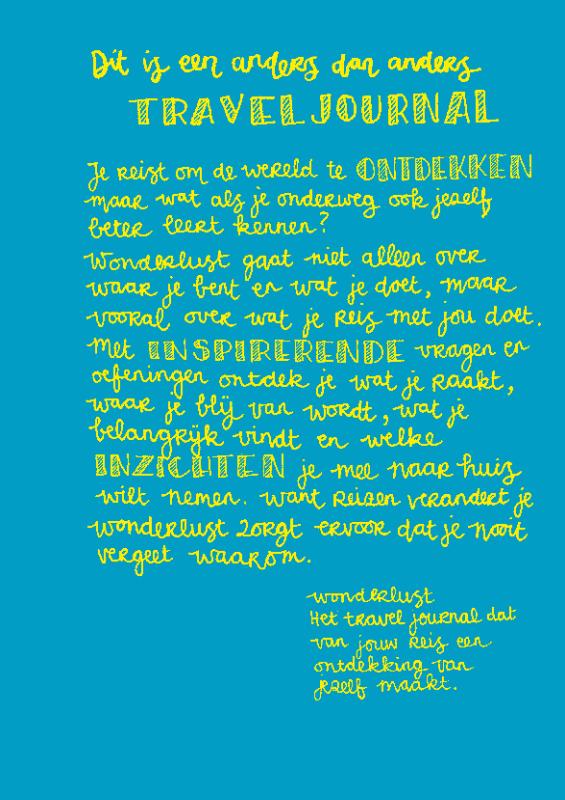 Dit is een anders dan anders
TRAVELJOURNAL
Je reist om de wereld te ONTDEKKEN
maar wat als je onderweg ook jezelf
beter leert kennen?
Wonderlust gaat niet alleen over
waar je bent en wat je doet, maar
vooral over wat je reis met jou doet.
Met INSPIRERENDE vragen en
oefeningen ontdek je wat je raakt,
waar je blij van wordt, wat je
belangrijk vindt en welke
INZICHTEN je mee naar huis
wilt nemen. Want reizen verandert je
wonderlust zorgt ervoor dat je nooit
vergeet waarom.
wonderlust
Het travel journal dat
van jouw reis een
ontdekking van
jezelf maakt.